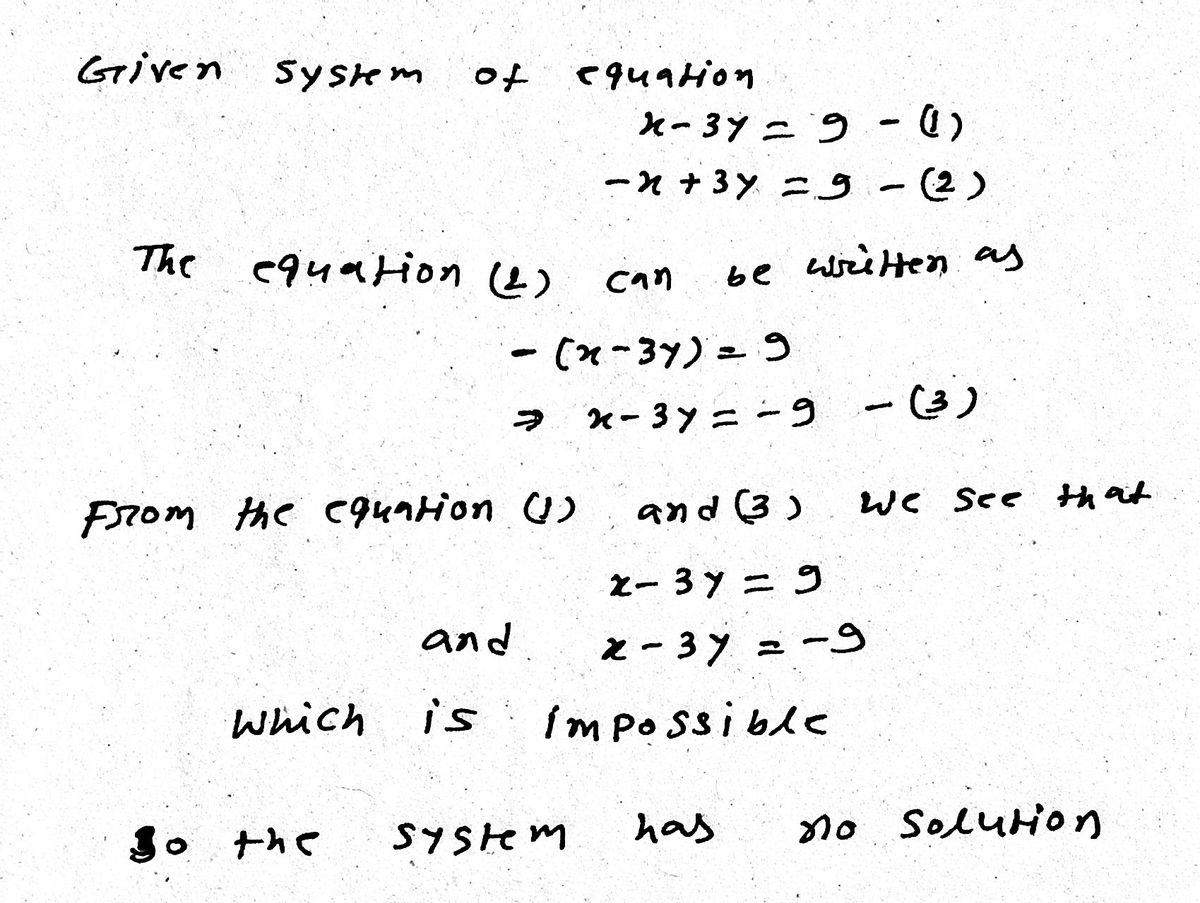 Given system of equation
x - 3y = 9 - (1)
-x + 3y = 9 - (2)
The equation (2) can be written as
- (x - 3y) = 9
⇒ x - 3y = -9 - (3)
From the equation (1) and (3) we see that
x - 3y = 9
and x - 3y = -9
which is impossible
so the system has no solution